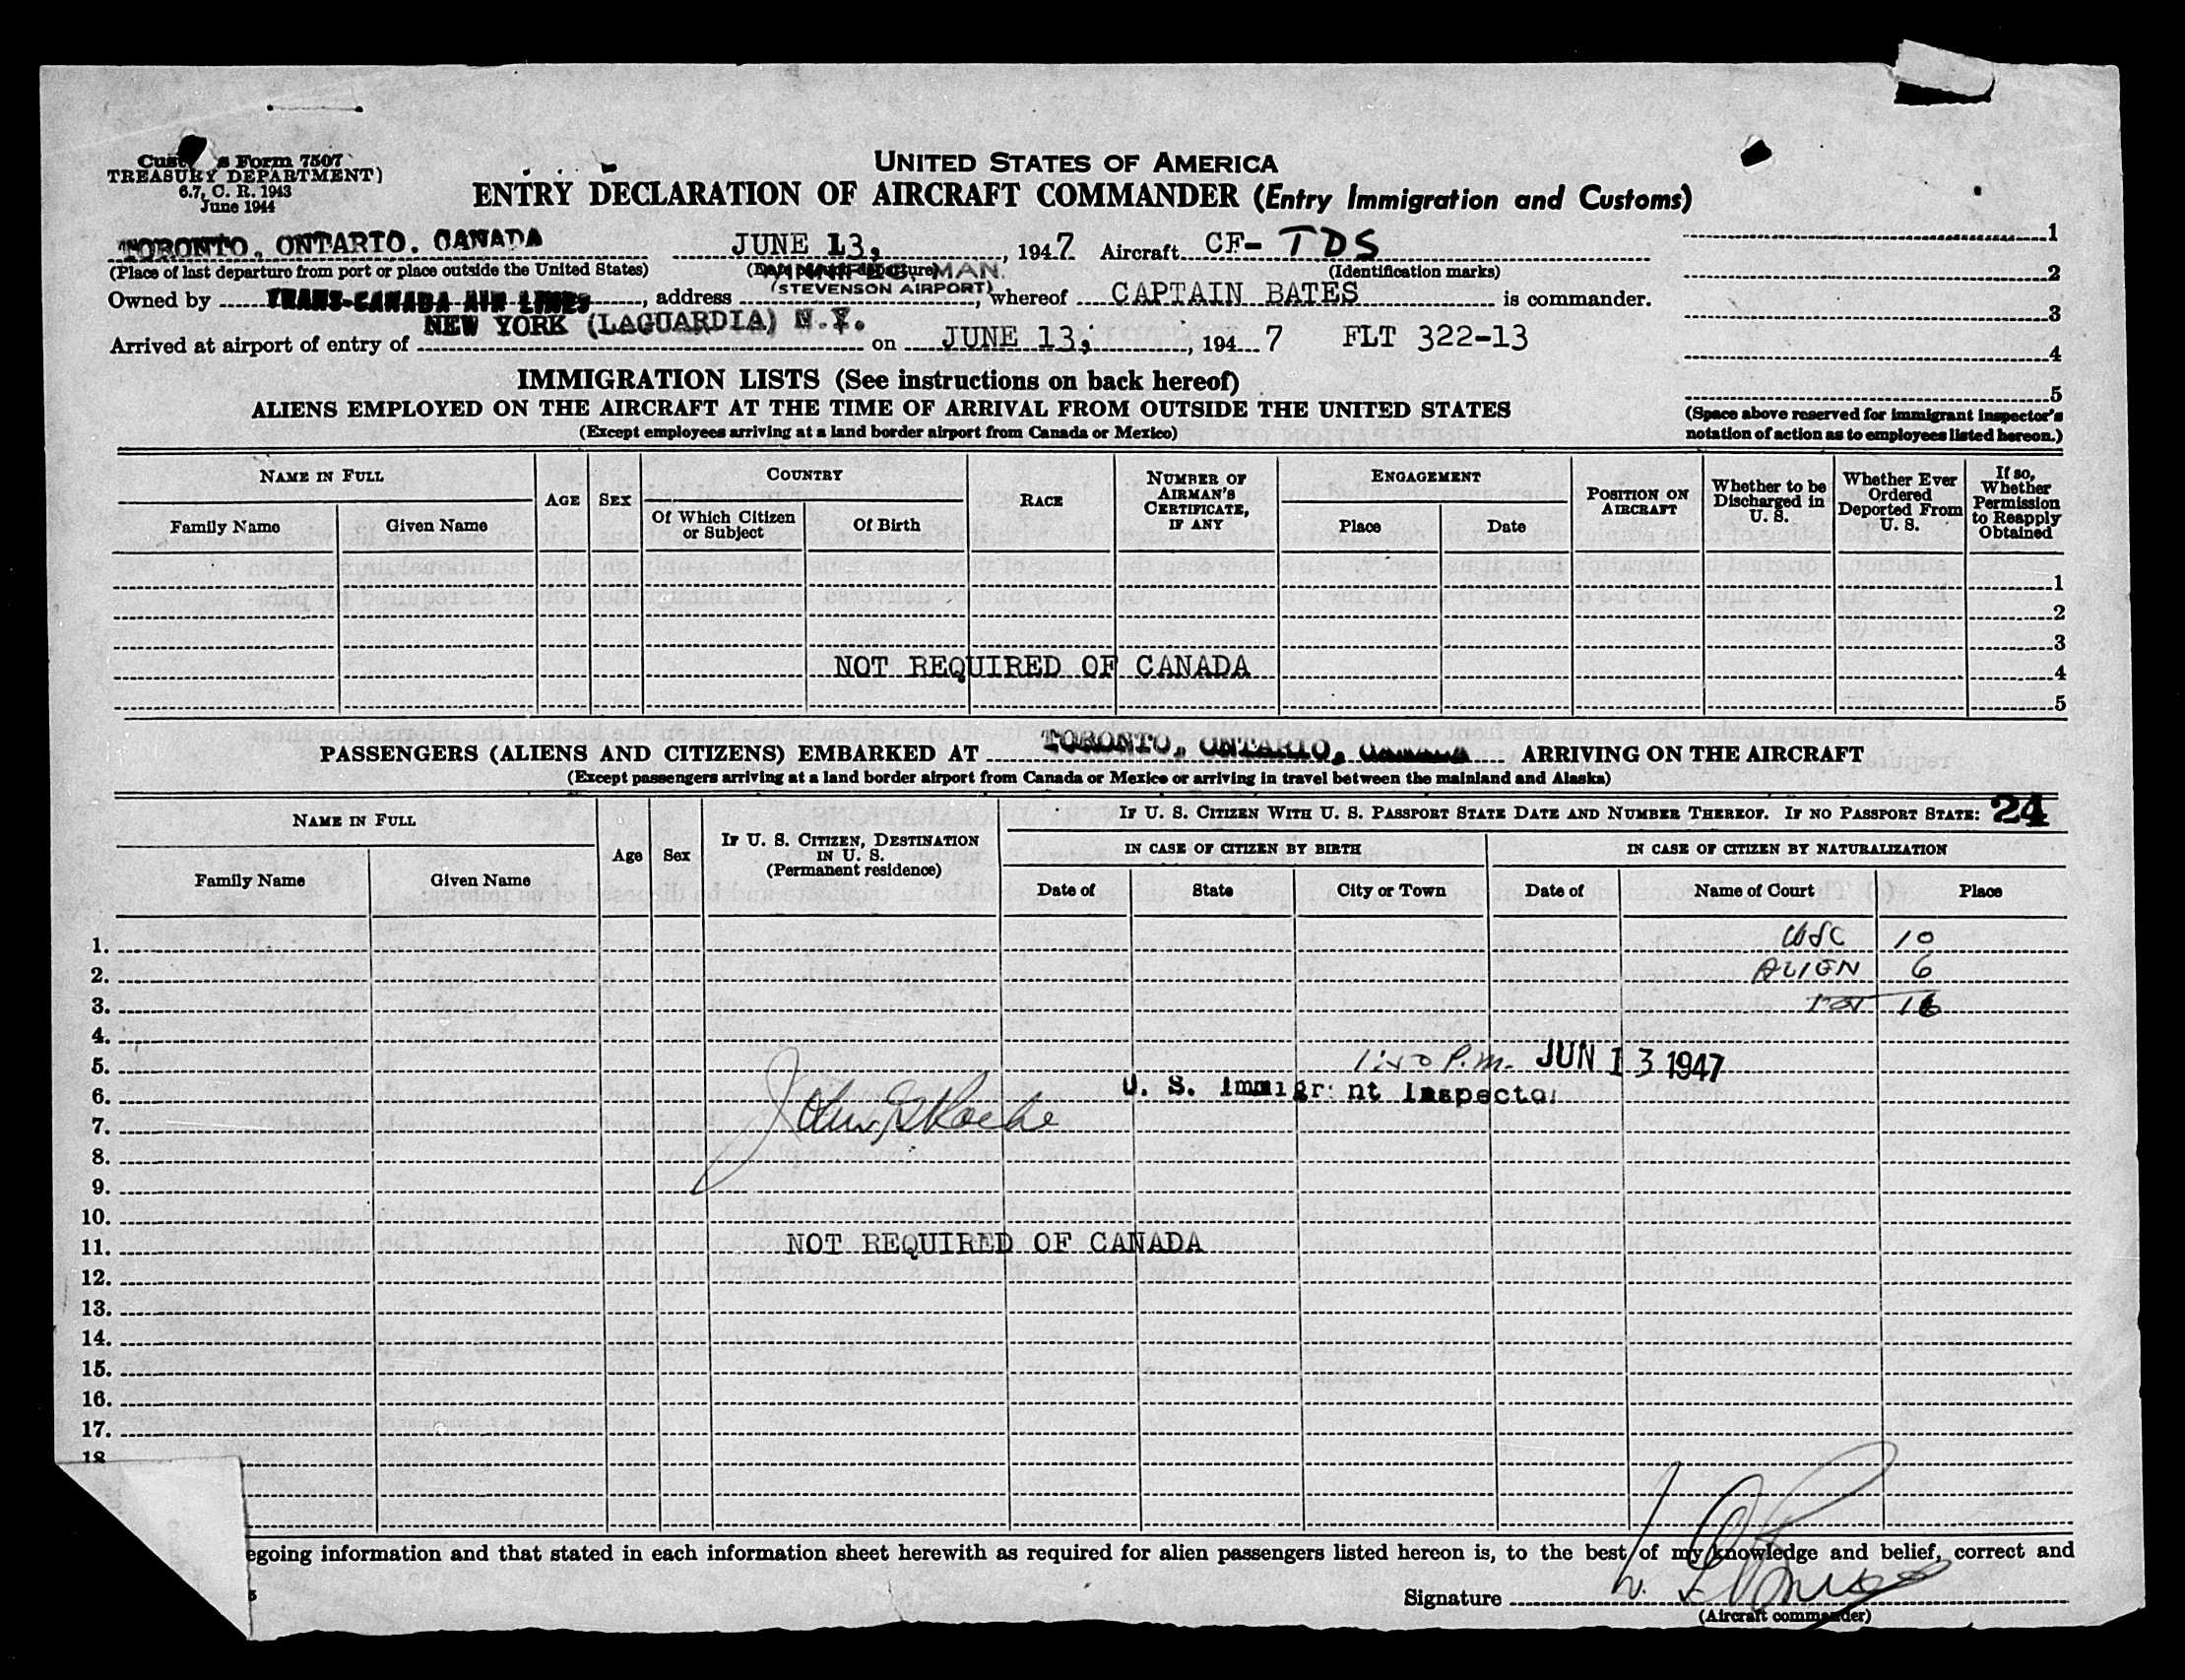 UNITED STATES OF AMERICA
Customs Form 7507
TREASURY DEPARTMENT)
6.7, C. R. 1943
June 1944
ENTRY DECLARATION OF AIRCRAFT COMMANDER (Entry Immigration and Customs)
TORONTO, ONTARIO, CANADA JUNE 13, , 1947 Aircraft CF- TDS
(Place of last departure from port or place outside the United States) (Identification marks)
WINNIPEG, MAN.
(STEVENSON AIRPORT)
Owned by TRANS-CANADA AIR LINES , address , whereof CAPTAIN BATES is commander.
NEW YORK (LAGUARDIA) N.Y.
Arrived at airport of entry of on JUNE 13, , 194 7 FLT 322-13
1
2
3
4
5
(Space above reserved for immigrant inspector's
notation of action as to employees listed hereon.)
IMMIGRATION LISTS (See instructions on back hereof)
ALIENS EMPLOYED ON THE AIRCRAFT AT THE TIME OF ARRIVAL FROM OUTSIDE THE UNITED STATES
(Except employees arriving at a land border airport from Canada or Mexico)
NAME IN FULL
Family Name
Given Name
AGE
SEX
COUNTRY
Of Which Citizen
or Subject
Of Birth
RACE
NUMBER OF
AIRMAN'S
CERTIFICATE,
IF ANY
ENGAGEMENT
Place
Date
POSITION ON
AIRCRAFT
Whether to be
Discharged in
U. S.
Whether Ever
Ordered
Deported From
U. S.
If so,
Whether
Permission
to Reapply
Obtained
1
2
3
NOT REQUIRED OF CANADA 4
5
PASSENGERS (ALIENS AND CITIZENS) EMBARKED AT TORONTO, ONTARIO, CANADA ARRIVING ON THE AIRCRAFT
(Except passengers arriving at a land border airport from Canada or Mexico or arriving in travel between the mainland and Alaska)
NAME IN FULL
Family Name
Given Name
Age
Sex
IF U. S. CITIZEN, DESTINATION
IN U. S.
(Permanent residence)
IF U. S. CITIZEN WITH U. S. PASSPORT STATE DATE AND NUMBER THEREOF. IF NO PASSPORT STATE: 24
IN CASE OF CITIZEN BY BIRTH
IN CASE OF CITIZEN BY NATURALIZATION
Date of
State
City or Town
Date of
Name of Court
Place
1. USC 10
2. ALIEN 6
3. TOT 16
4.
5. P.M. JUN 13 1947
6. U. S. Immigrant Inspector
7. John Roche
8.
9.
10.
11. NOT REQUIRED OF CANADA
12.
13.
14.
15.
16.
17.
18
egoing information and that stated in each information sheet herewith as required for alien passengers listed hereon is, to the best of my knowledge and belief, correct and
Signature
(Aircraft commander)